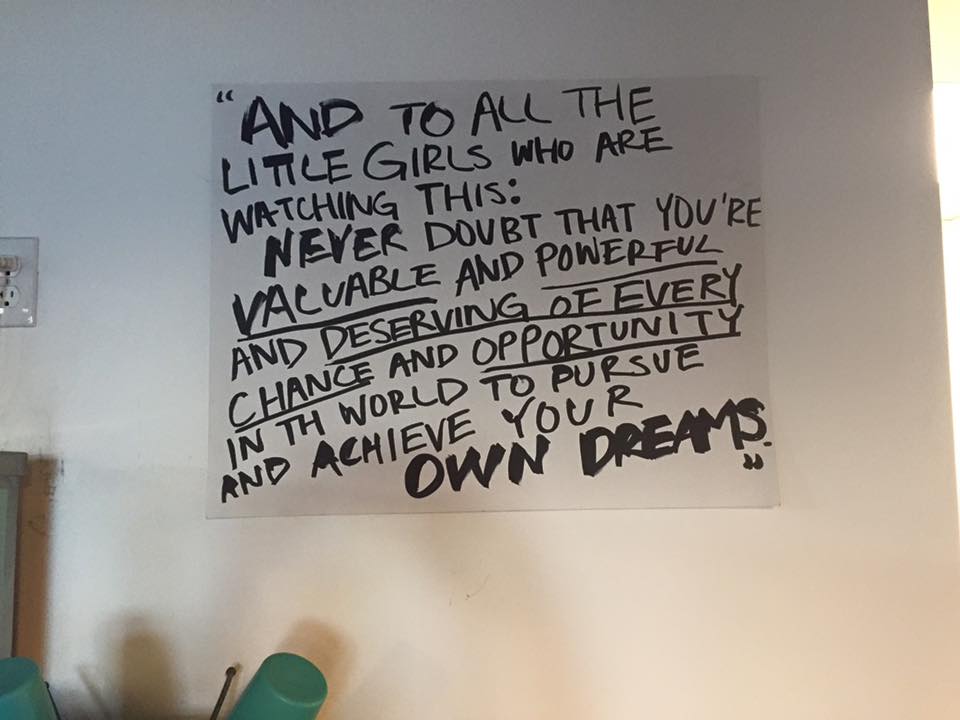 “AND TO ALL THE
LITTLE GIRLS WHO ARE
WATCHING THIS:
NEVER DOUBT THAT YOU'RE
VALUABLE AND POWERFUL
AND DESERVING OF EVERY
CHANCE AND OPPORTUNITY
IN TH WORLD TO PURSUE
AND ACHIEVE YOUR
OWN DREAMS.”